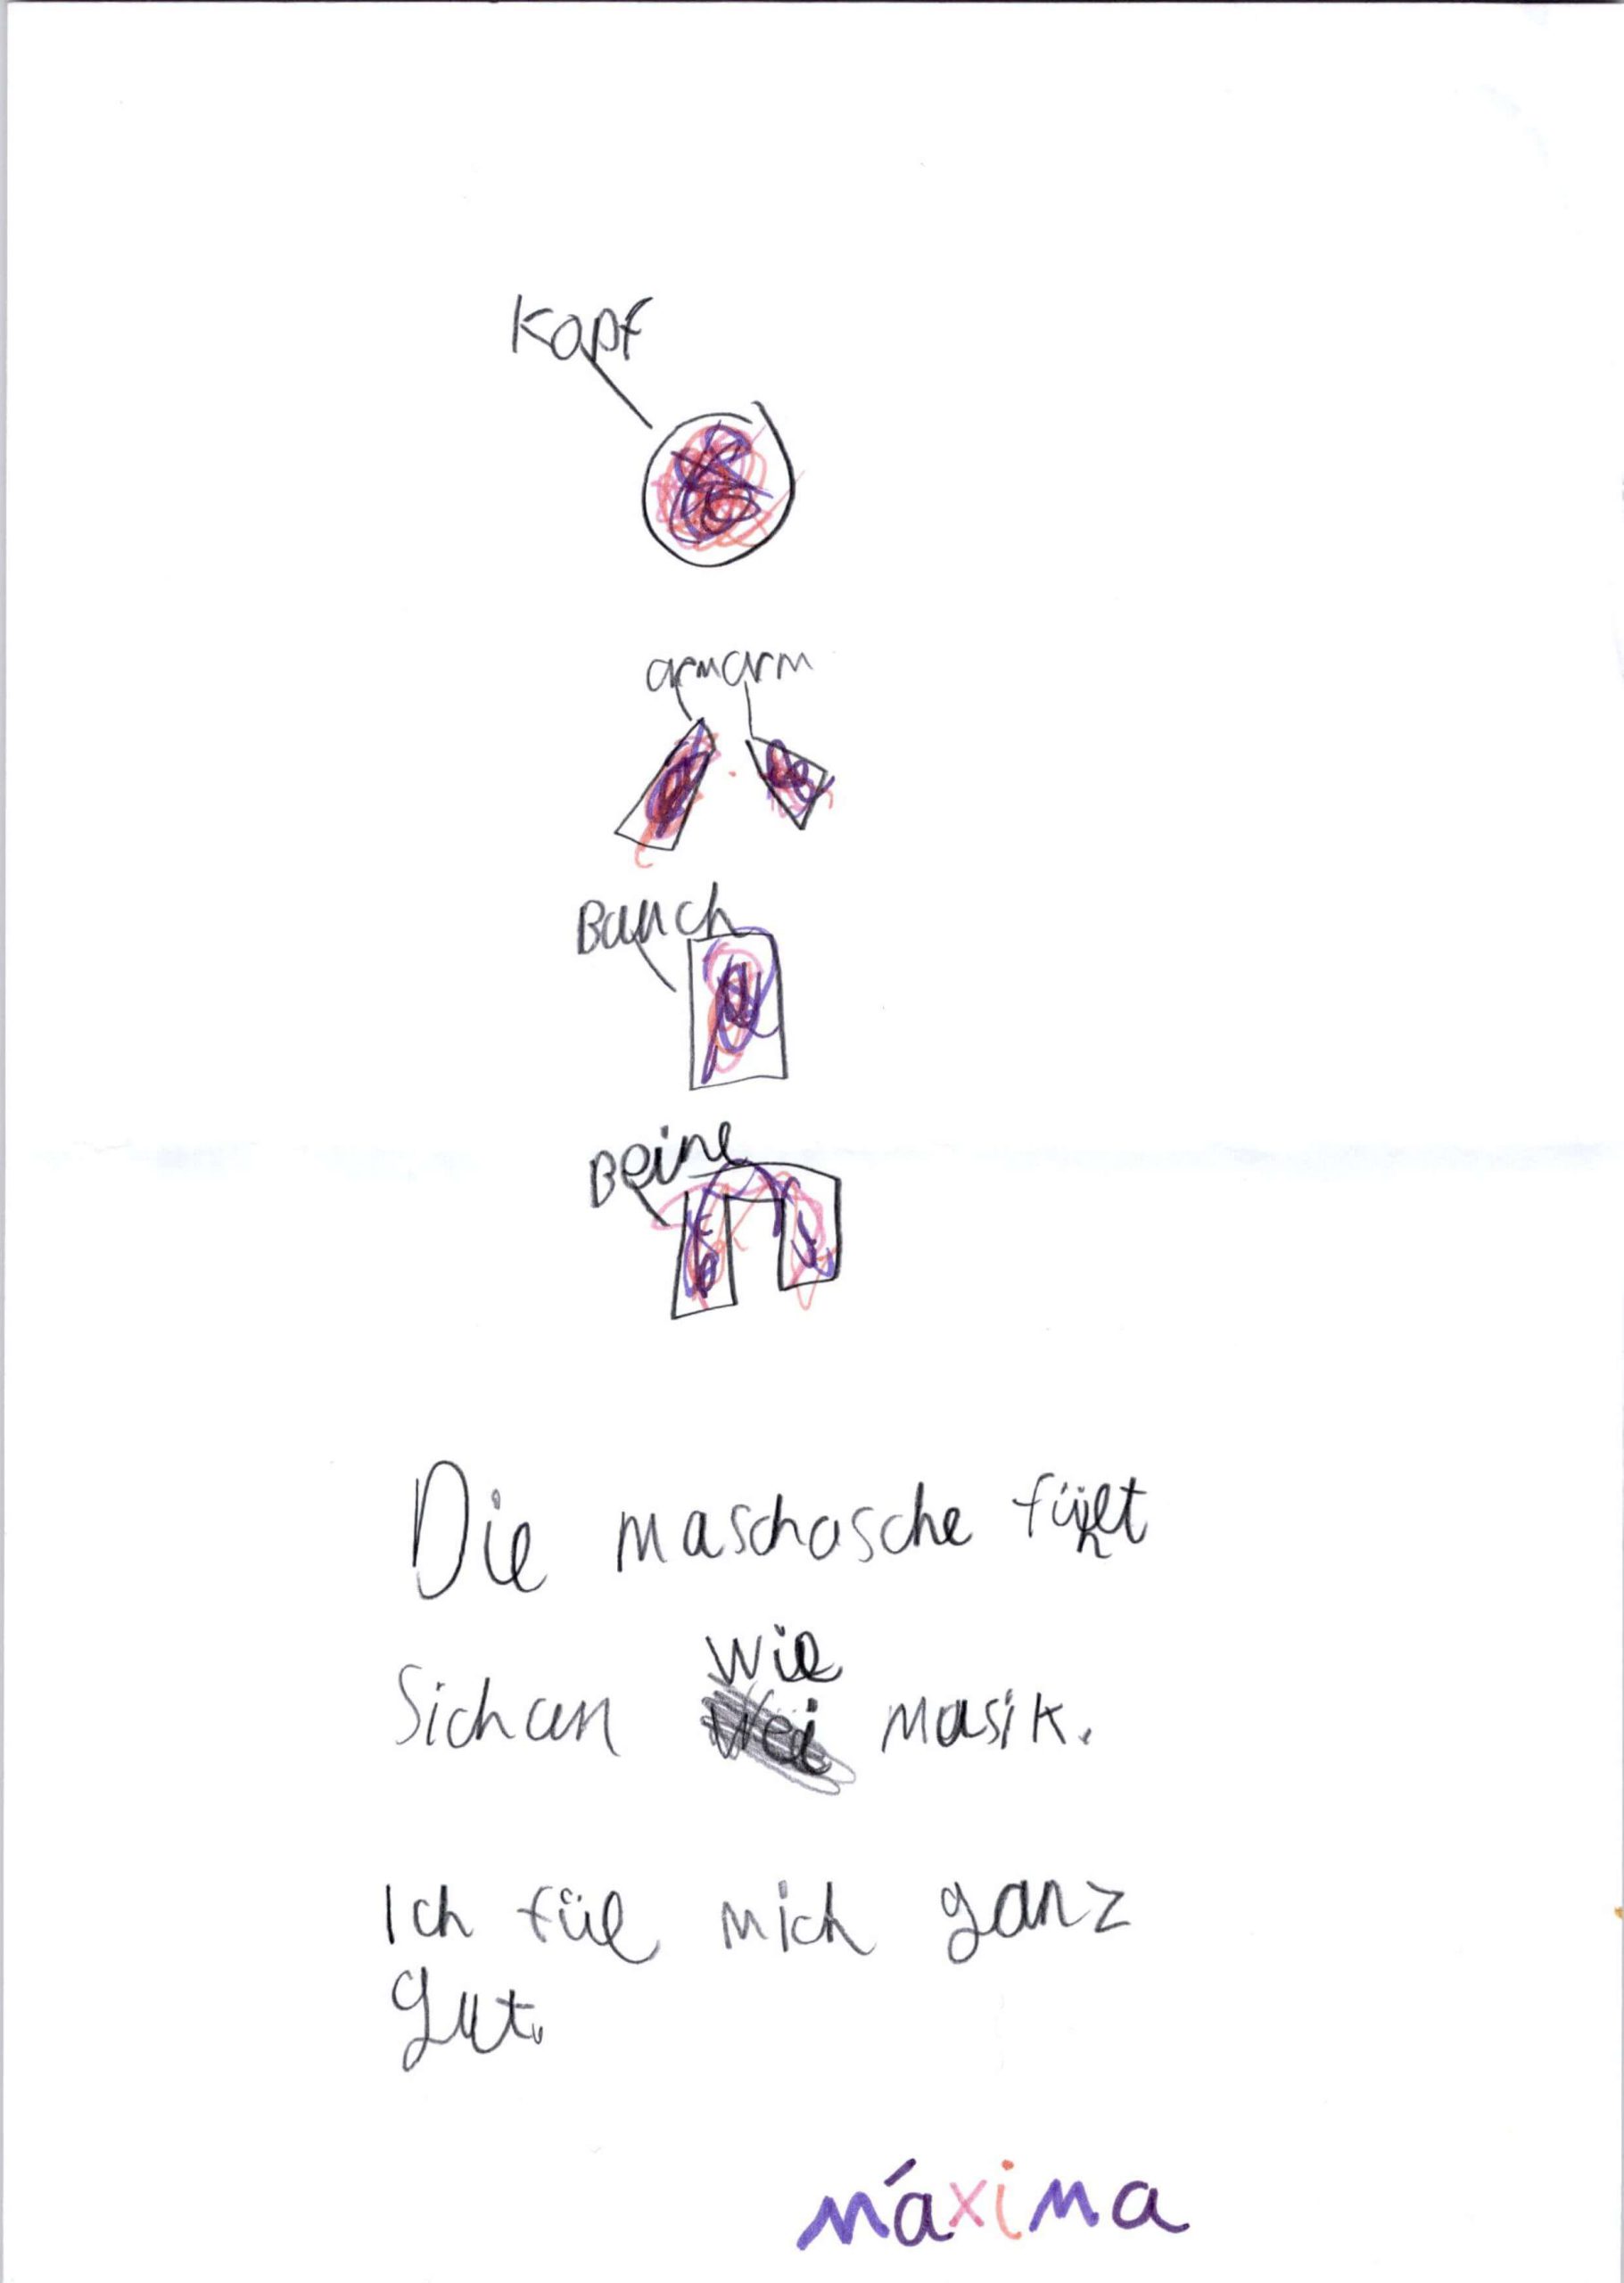 Kopf
arm arm
Bauch
Beine
Die maschasche fühlt
Sich an wie
masik.
Ich füle mich ganz
gut.
máxima